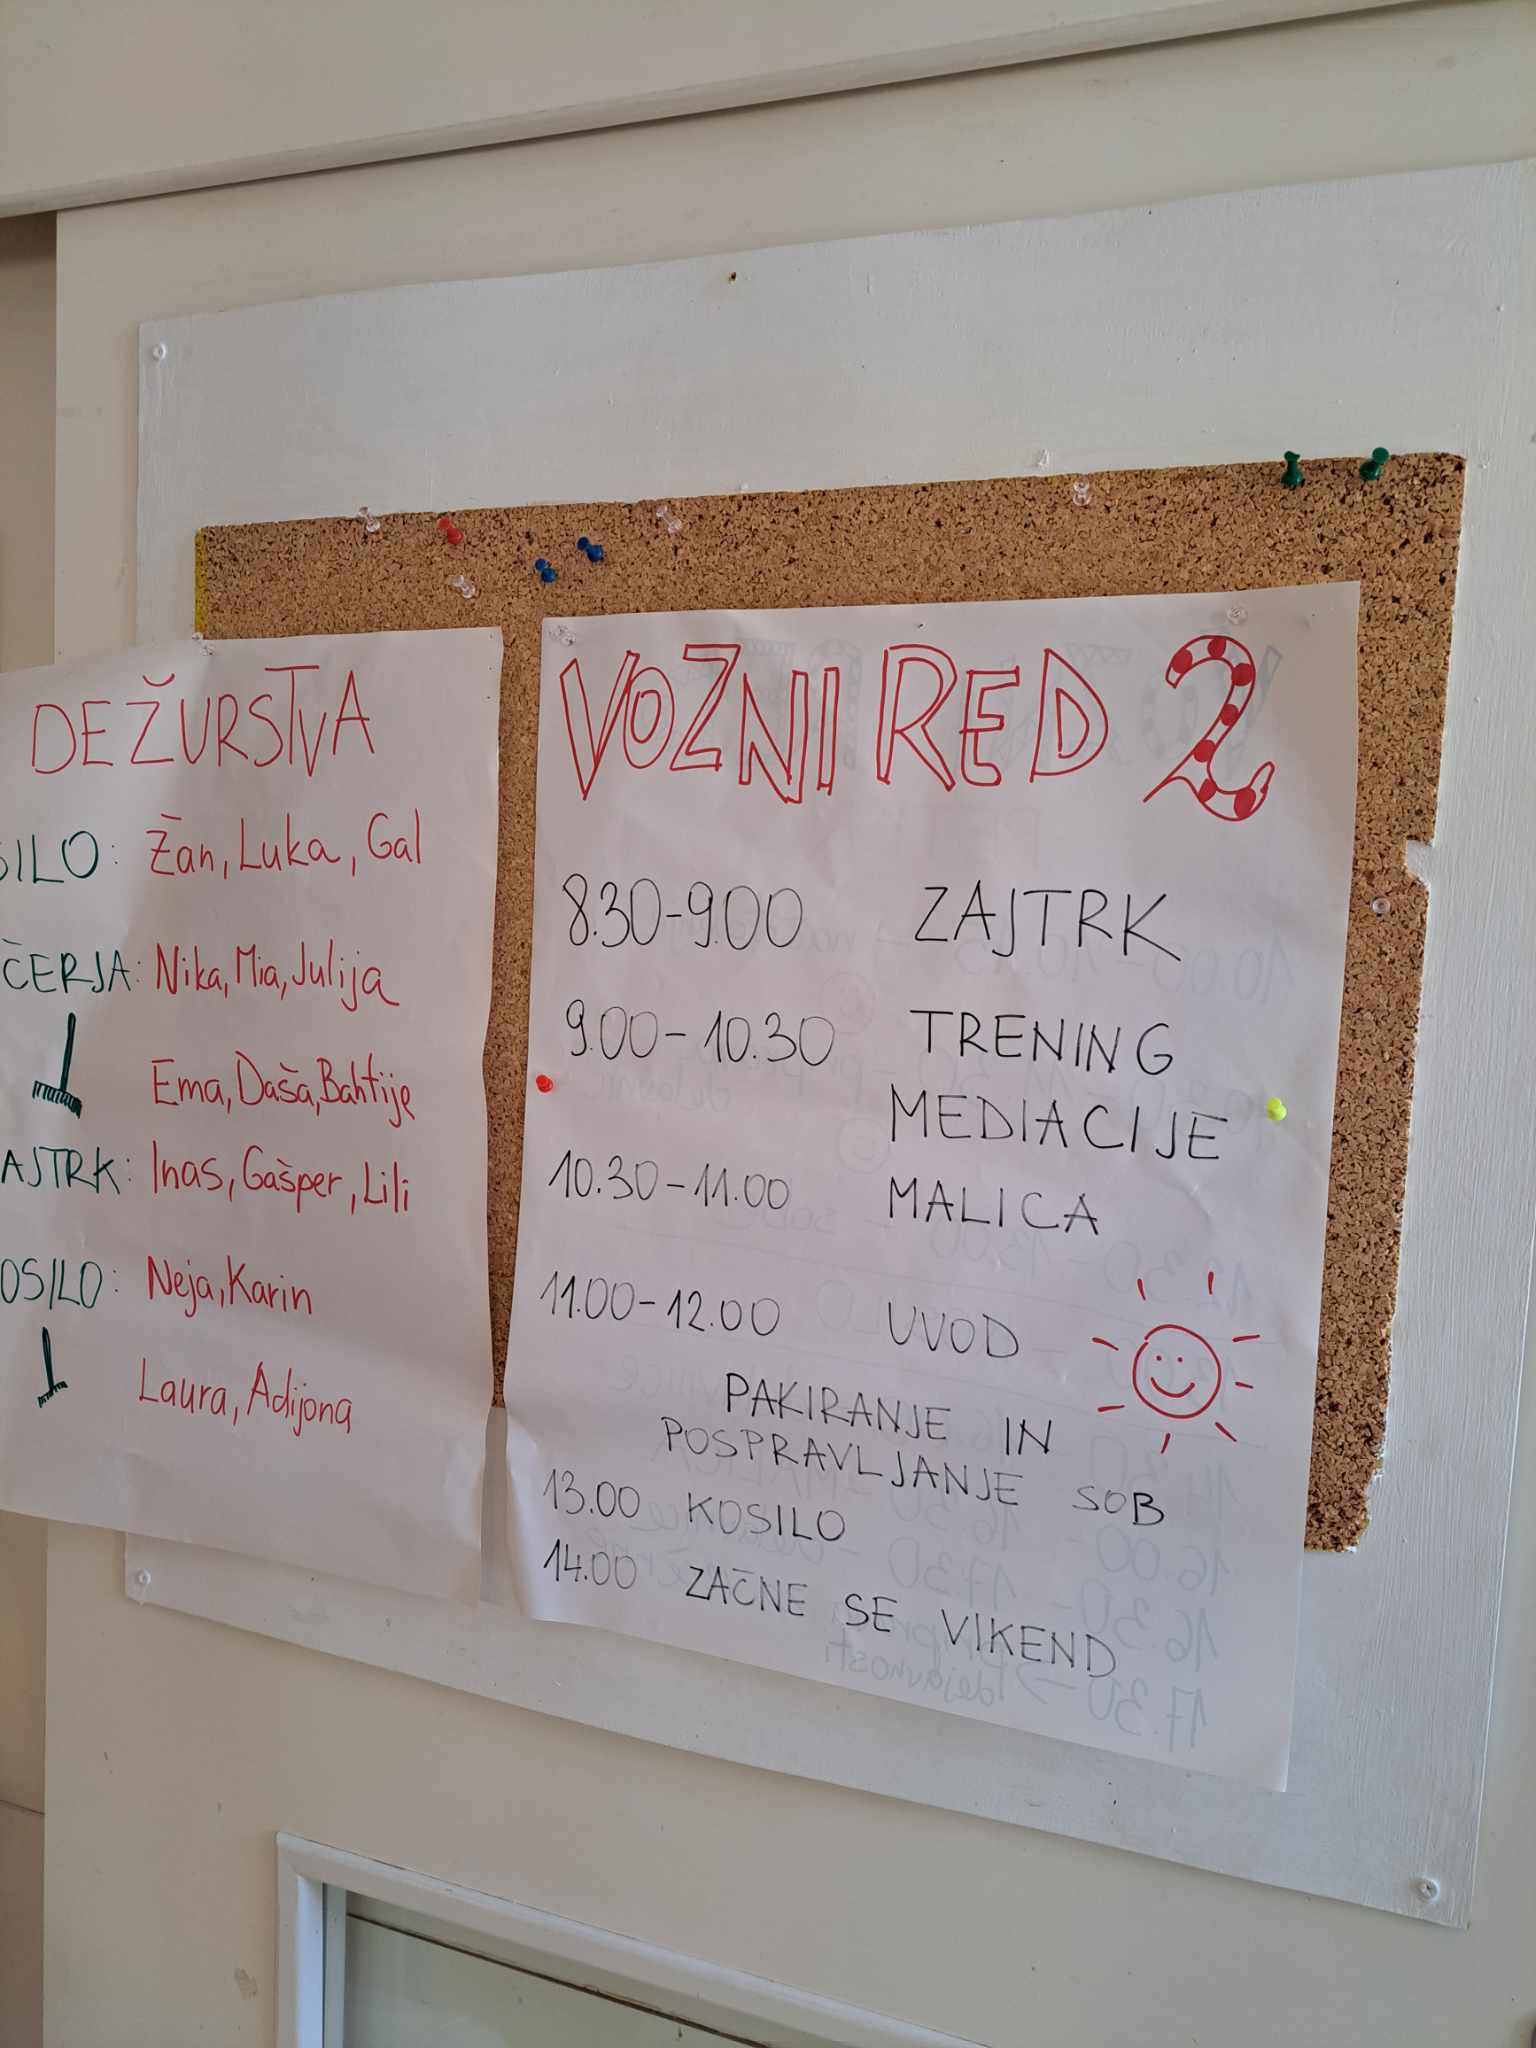 DEŽURSTVA
SILO: Žan, Luka, Gal
ČERJA: Nika, Mia, Julija
Ema, Daša, Bahtije
AJTRK: Inas, Gašper, Lili
OSILO: Neja, Karin
Laura, Adijona
VOZNI RED 2
8.30-9.00 ZAJTRK
9.00-10.30 TRENING
MEDIACIJE
10.30-11.00 MALICA
11.00-12.00 UVOD
PAKIRANJE IN
POSPRAVLJANJE SOB
13.00 KOSILO
14.00 ZAČNE SE VIKEND